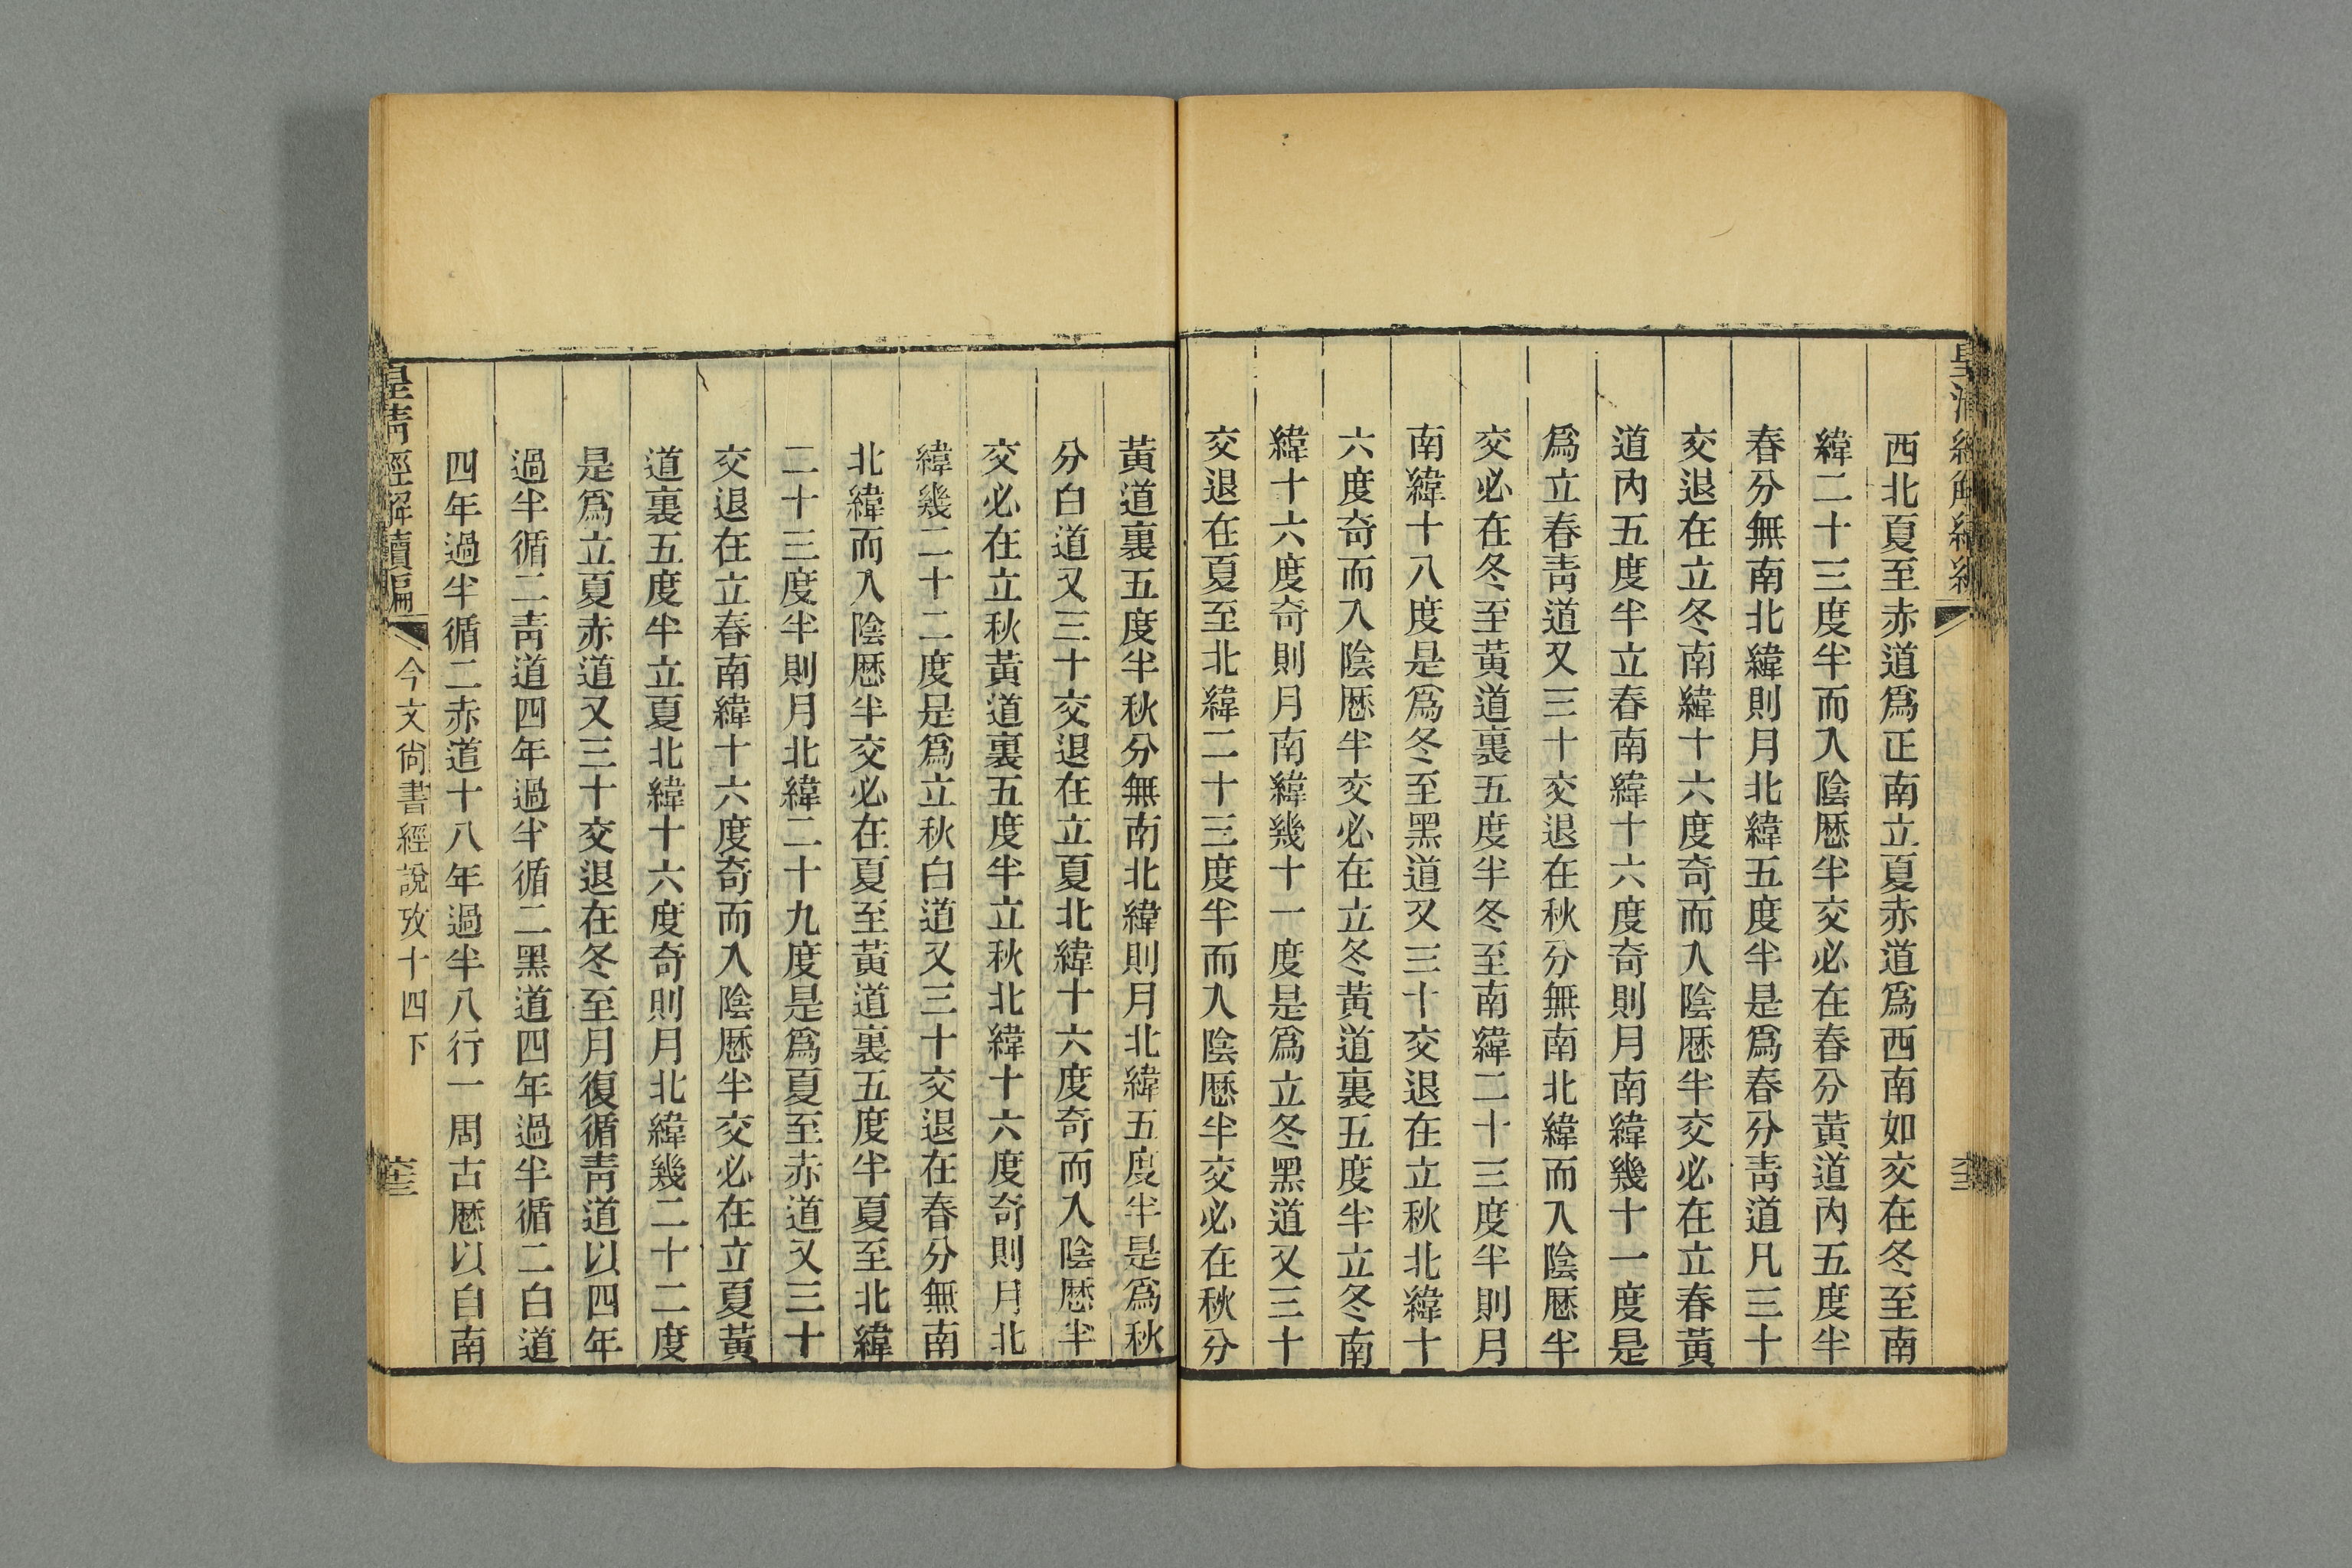 皇清經解續編
西北夏至赤道爲正南立夏赤道爲西南如交在冬至南
緯二十三度半而入陰厯半交必在春分黃道內五度半
春分無南北緯則月北緯五度半是爲春分靑道凡三十
交退在立冬南緯十六度奇而入陰厯半交必在立春黃
道內五度半立春南緯十六度奇則月南緯幾十一度是
爲立春靑道又三十交退在秋分無南北緯而入陰厯半
交必在冬至黃道裏五度半冬至南緯二十三度半則月
南緯十八度是爲冬至黑道又三十交退在立秋北緯十
六度奇而入陰厯半交必在立冬黃道裏五度半立冬南
緯十六度奇則月南緯幾十一度是爲立冬黑道又三十
交退在夏至北緯二十三度半而入陰厯半交必在秋分
黃道裏五度半秋分無南北緯則月北緯五度半是爲秋
分白道又三十交退在立夏北緯十六度奇而入陰厯半
交必在立秋黃道裏五度半立秋北緯十六度奇則月北
緯幾二十二度是爲立秋白道又三十交退在春分無南
北緯而入陰厯半交必在夏至黃道裏五度半夏至北緯
二十三度半則月北緯二十九度是爲夏至赤道又三十
交退在立春南緯十六度奇而入陰厯半交必在立夏黃
道裏五度半立夏北緯十六度奇則月北緯幾二十二度
是爲立夏赤道又三十交退在冬至月復循靑道以四年
過半循二靑道四年過半循二黑道四年過半循二白道
四年過半循二赤道十八年過半八行一周古厯以自南
皇清經解續編
今文尙書經說攷十四下